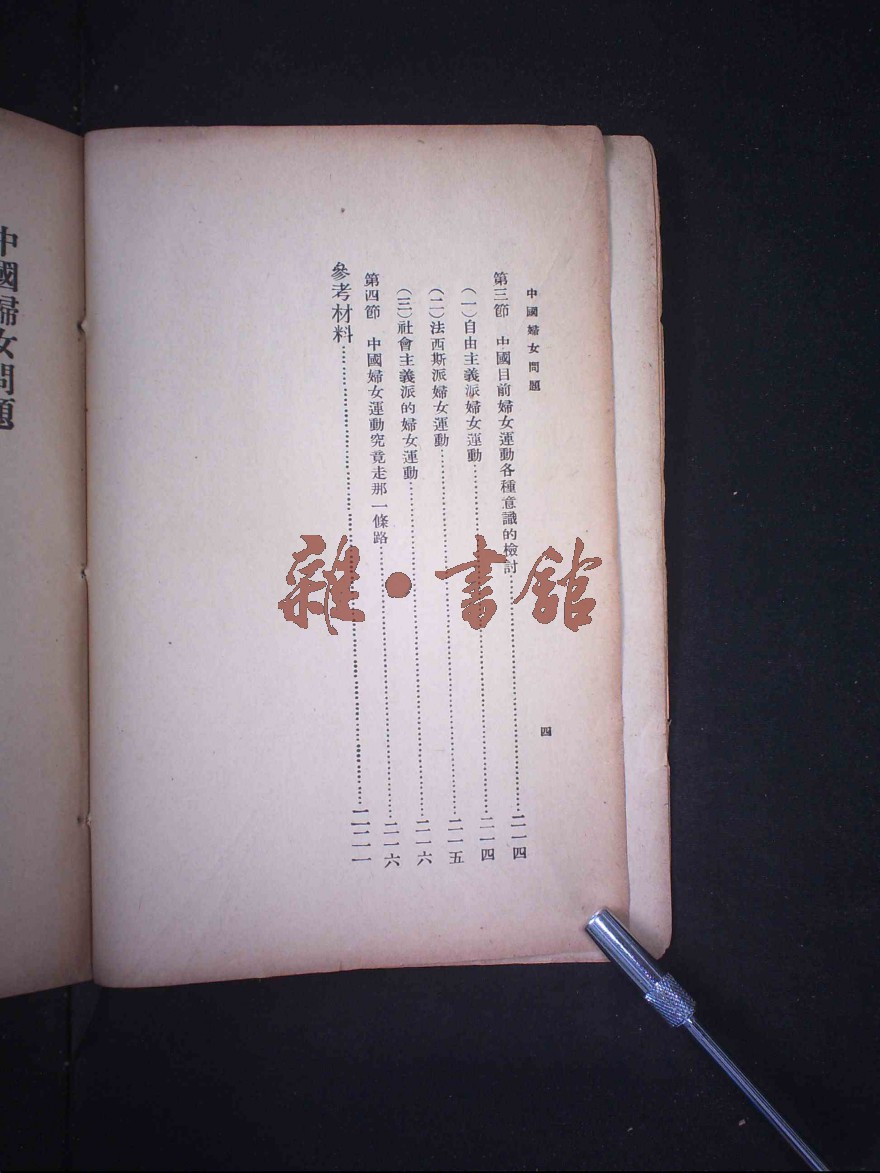 中國婦女問題
四
第三節　中國目前婦女運動各種意識的檢討……二一四
（一）自由主義派婦女運動……二一四
（二）法西斯派婦女運動……二一五
（三）社會主義派的婦女運動……二一六
第四節　中國婦女運動究竟走那一條路……二一六
參考材料……二二一
中國婦女問題
雜·書館